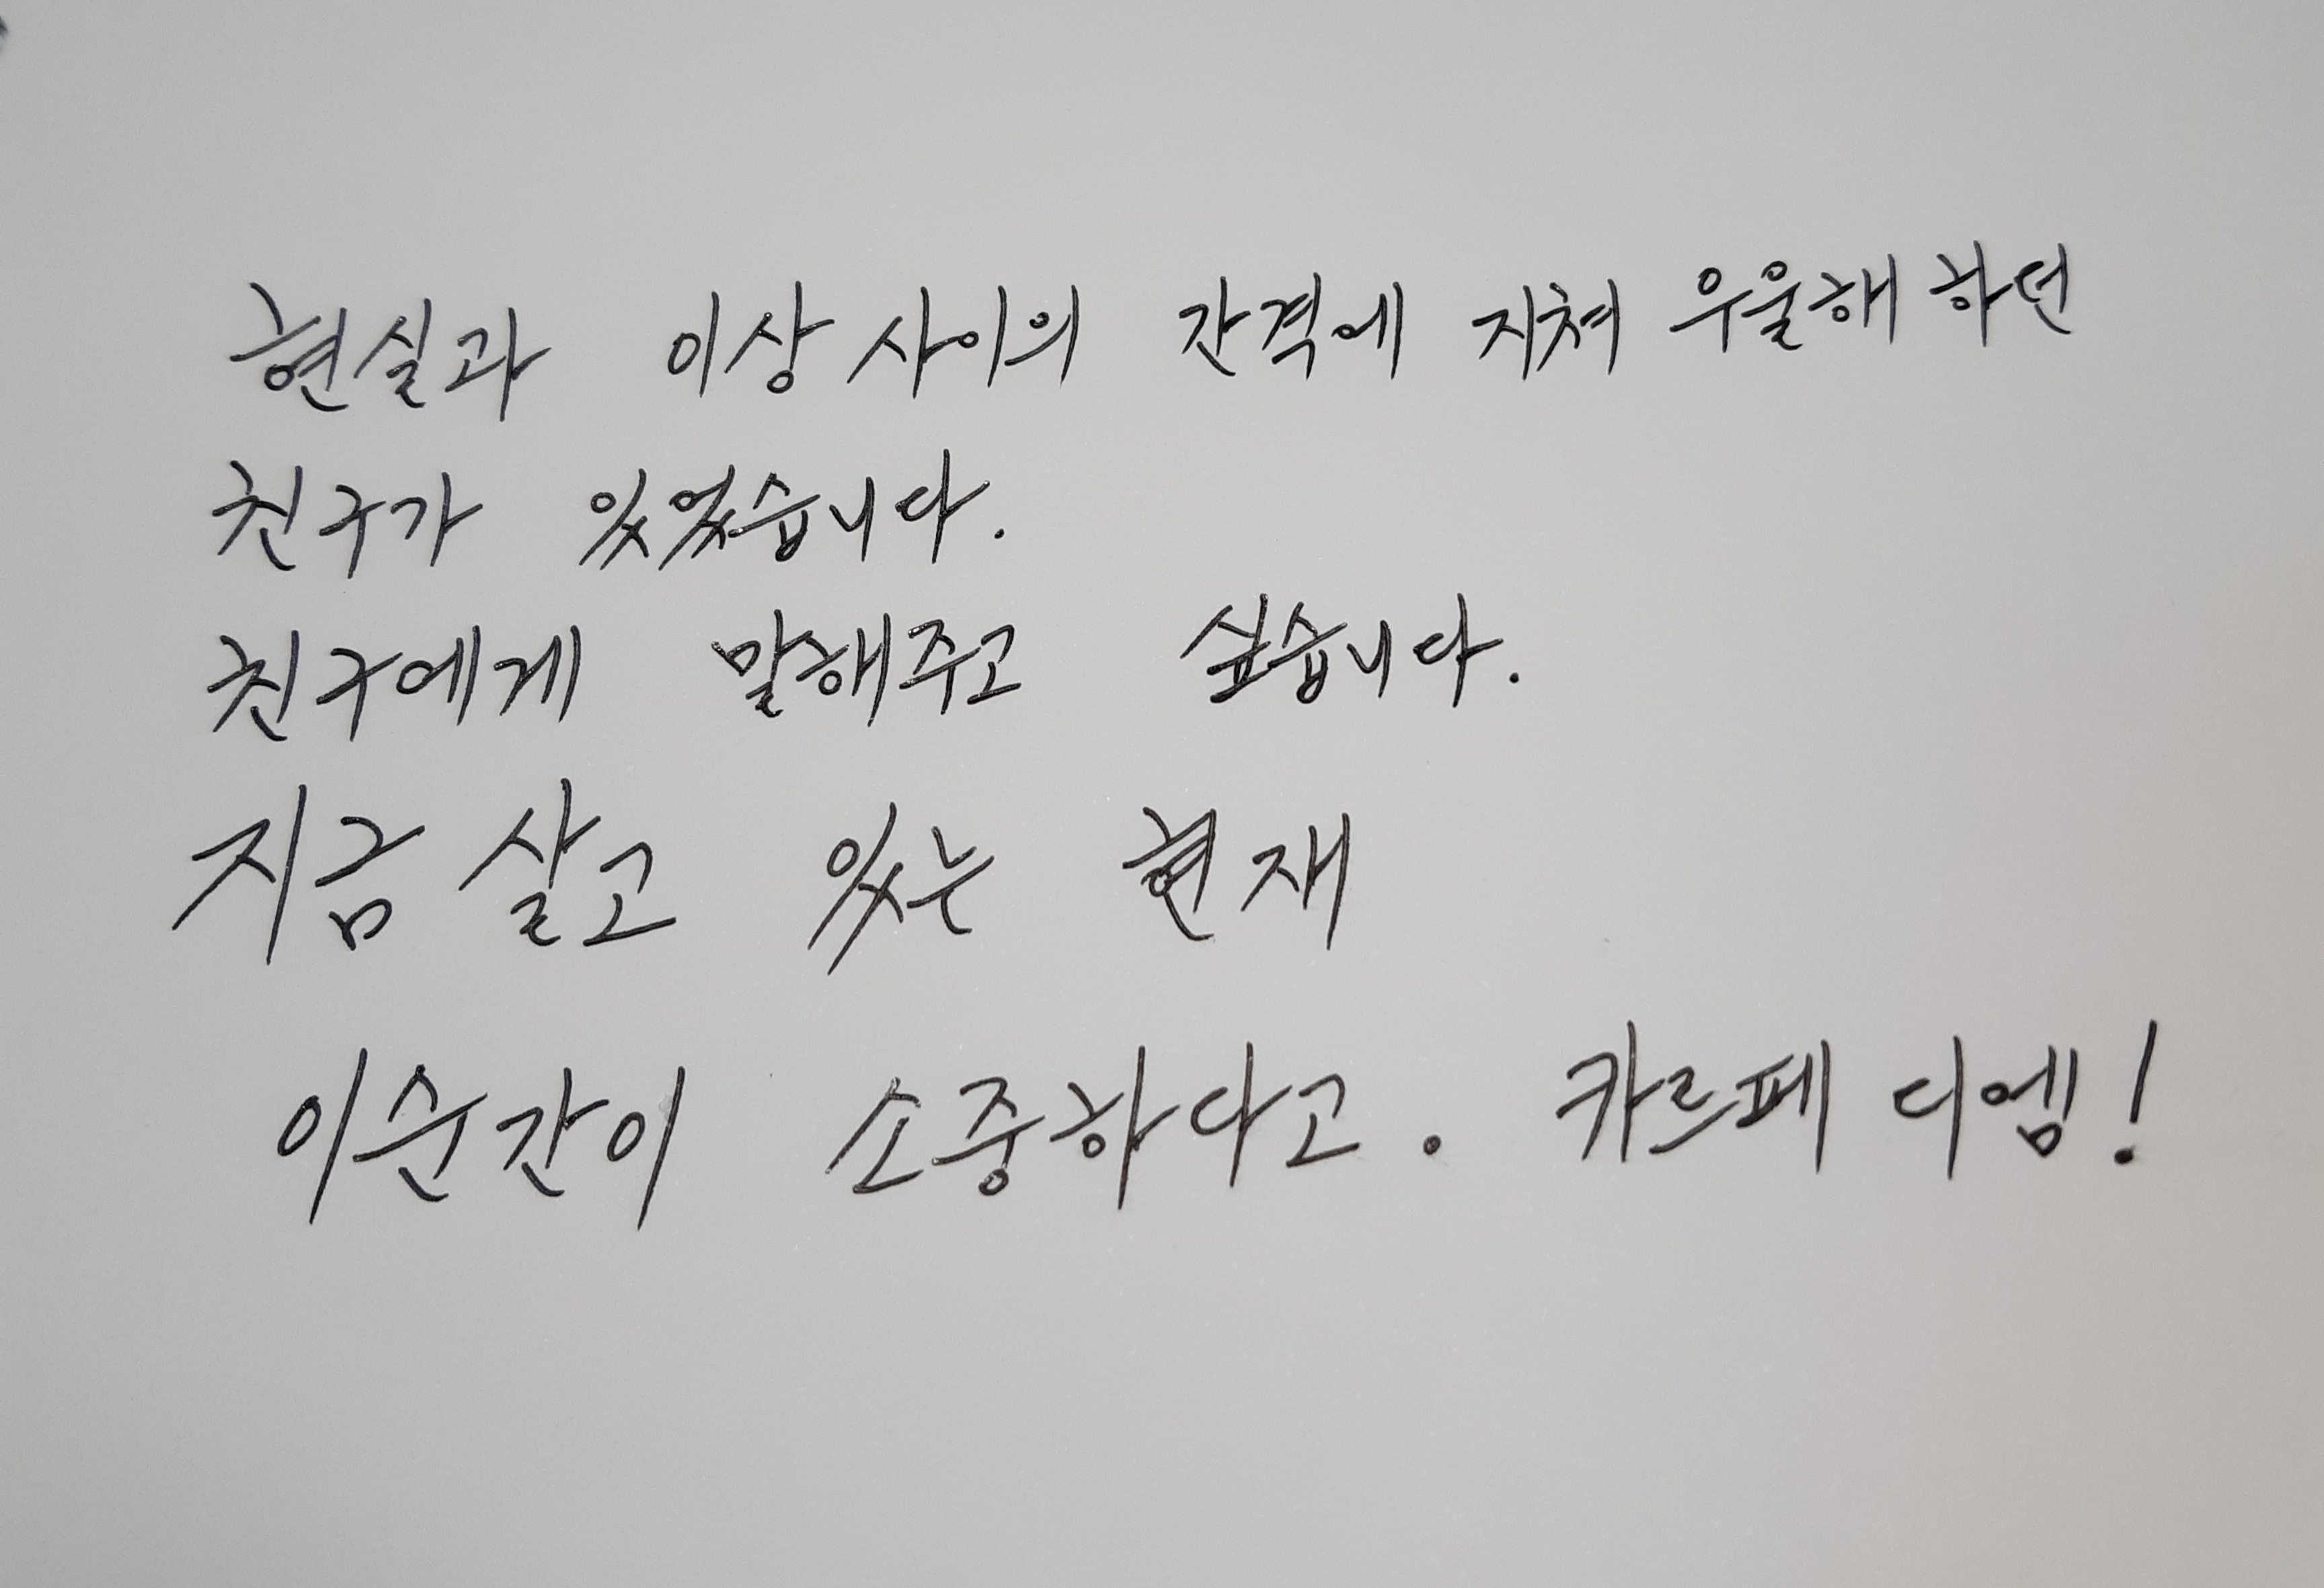 현실과 이상 사이의 간격에 지쳐 우울해 하던
친구가 있었습니다.
친구에게 말해주고 싶습니다.
지금 살고 있는 현재
이순간이 소중하다고. 카르페 디엠!